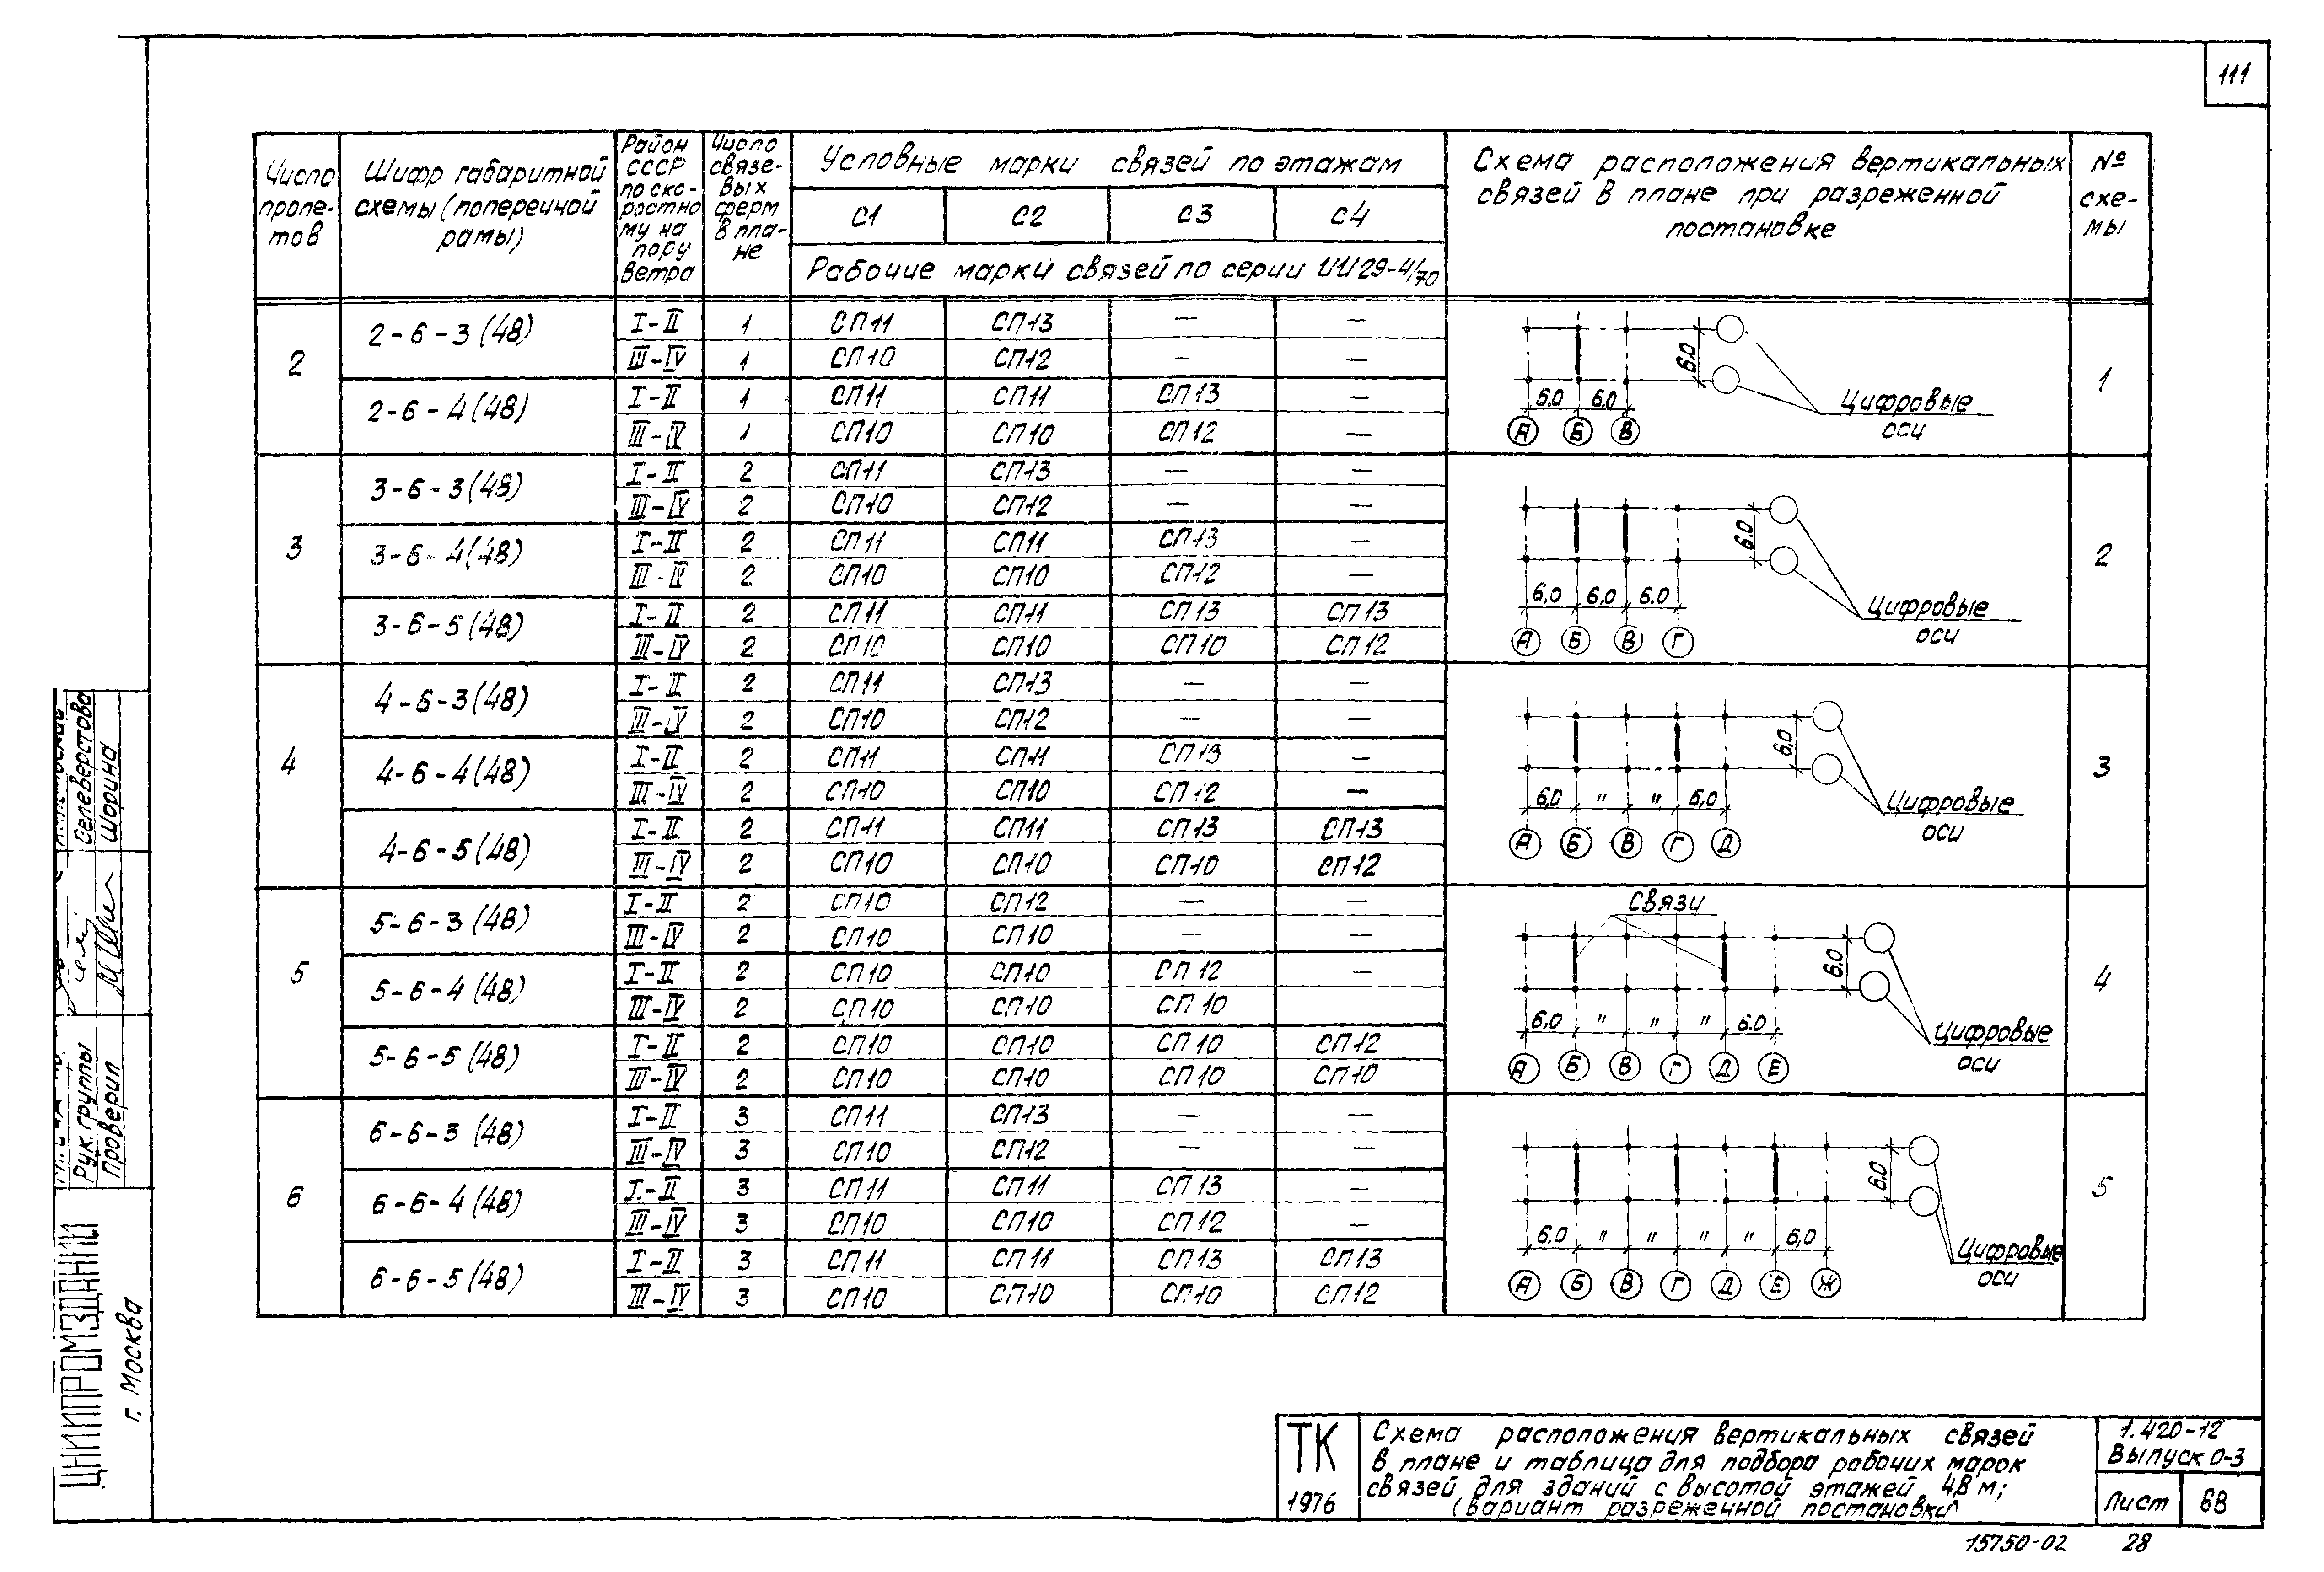 111
Число проле- тов
Шифр габаритной схемы (поперечной рамы)
Район СССР по ско- ростно му на пору ветра
Число связе- вых ферм в пла- не
Условные марки связей по этажам
С1 С2 С3 С4
Рабочие марки связей по серии ИИ29-4/70
Схема расположения вертикальных
связей в плане при разреженной
постановке
№ схе- мы
2
2-6-3 (48) I-II 1 СП11 СП13 — —
III-IV 1 СП10 СП12 — —
2-6-4 (48) I-II 1 СП11 СП11 СП13 —
III-IV 1 СП10 СП10 СП12 —
6.0
6.0 6.0
А Б В
Цифровые
оси
1
3
3-6-3 (48) I-II 2 СП11 СП13 — —
III-IV 2 СП10 СП12 — —
3-6-4 (48) I-II 2 СП11 СП11 СП13 —
III-IV 2 СП10 СП10 СП12 —
3-6-5 (48) I-II 2 СП11 СП11 СП13 СП13
III-IV 2 СП10 СП10 СП10 СП12
6.0
6,0 6.0 6.0
А Б В Г
Цифровые
оси
2
4
4-6-3 (48) I-II 2 СП11 СП13 — —
III-IV 2 СП10 СП12 — —
4-6-4 (48) I-II 2 СП11 СП11 СП13 —
III-IV 2 СП10 СП10 СП12 —
4-6-5 (48) I-II 2 СП11 СП11 СП13 СП13
III-IV 2 СП10 СП10 СП10 СП12
6,0
6,0 " " 6,0
А Б В Г Д
Цифровые
оси
3
5
5-6-3 (48) I-II 2 СП10 СП12 — —
III-IV 2 СП10 СП10 — —
5-6-4 (48) I-II 2 СП10 СП10 СП12 —
III-IV 2 СП10 СП10 СП10
5-6-5 (48) I-II 2 СП10 СП10 СП10 СП12
III-IV 2 СП10 СП10 СП10 СП10
Связи
6.0
6,0 " " " 6.0
А Б В Г Д Е
Цифровые
оси
4
6
6-6-3 (48) I-II 3 СП11 СП13 — —
III-IV 3 СП10 СП12 — —
6-6-4 (48) I-II 3 СП11 СП11 СП13 —
III-IV 3 СП10 СП10 СП12 —
6-6-5 (48) I-II 3 СП11 СП11 СП13 СП13
III-IV 3 СП10 СП10 СП10 СП12
6.0
6.0 " " " " 6,0
А Б В Г Д Е Ж
Цифровые
оси
5
Рук. группы Селеверстова
Проверил Шорина
ЦНИИПРОМЗДАНИЙ
г. Москва
ТК
1976
Схема расположения вертикальных связей
в плане и таблица для подбора рабочих марок
связей для зданий с высотой этажей 4,8 м;
(вариант разреженной постановки)
1.420-12
Выпуск 0-3
Лист 68
15750-02 28